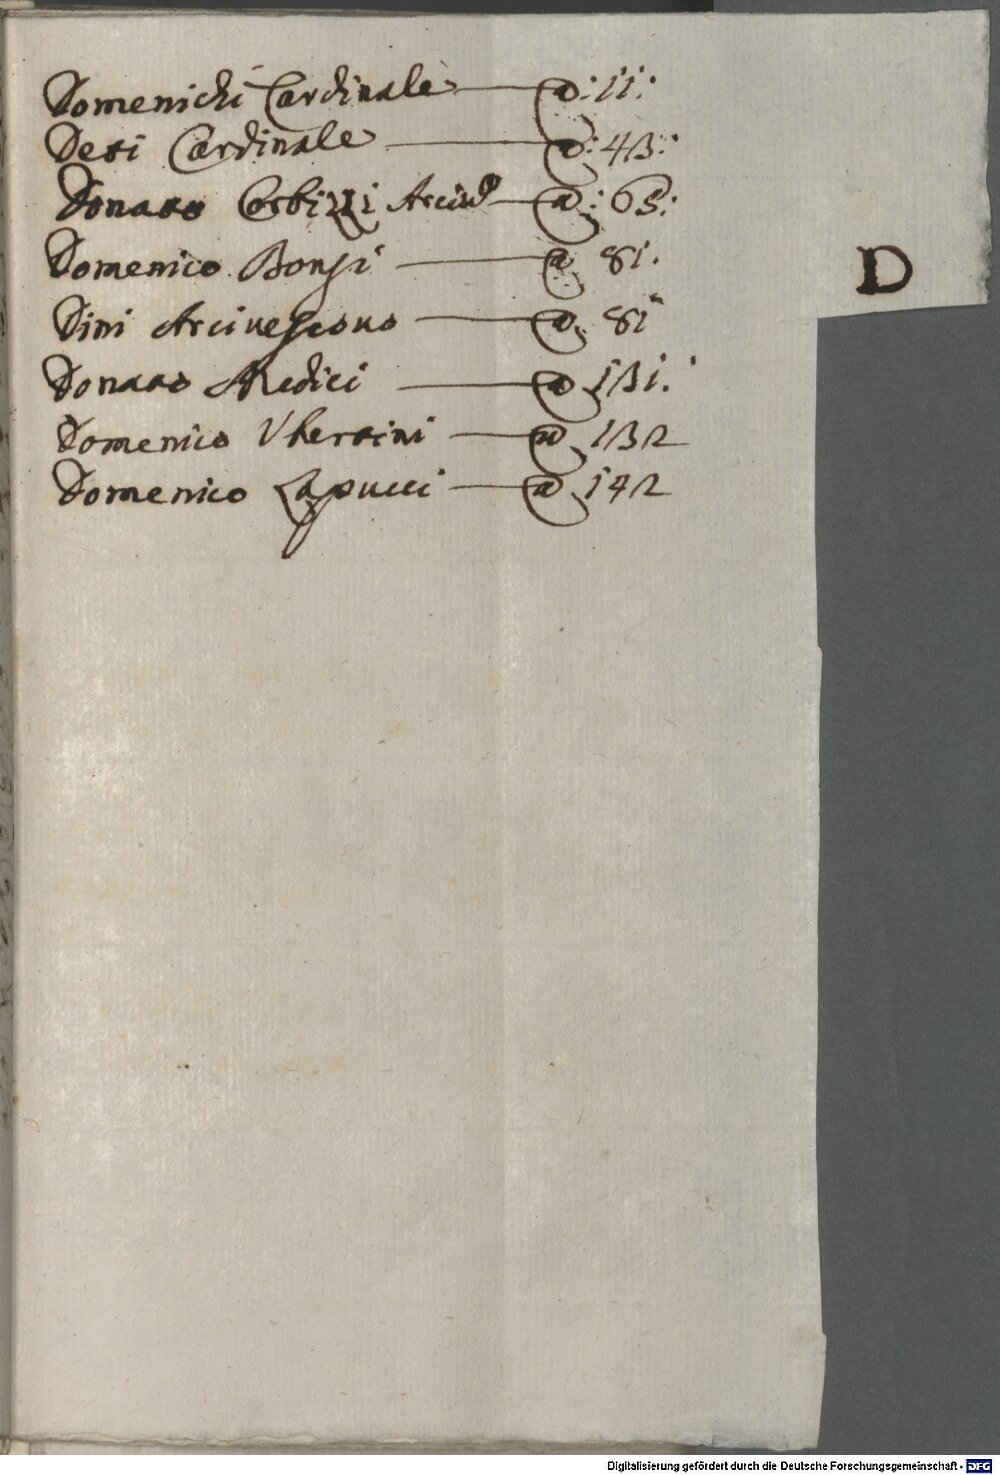 Domenichi Cardinale — a: 11:
Deti Cardinale — a: 43:
Donato Corbizzi Arciu.º — a: 65:
Domenico Bonsi — a 81.
Dini Arciuescouo — a. 81
Donato Medici — a 131.
Domenico Vbertini — a 132
Domenico Lapucci — a 142
D
Digitalisierung gefördert durch die Deutsche Forschungsgemeinschaft - DFG